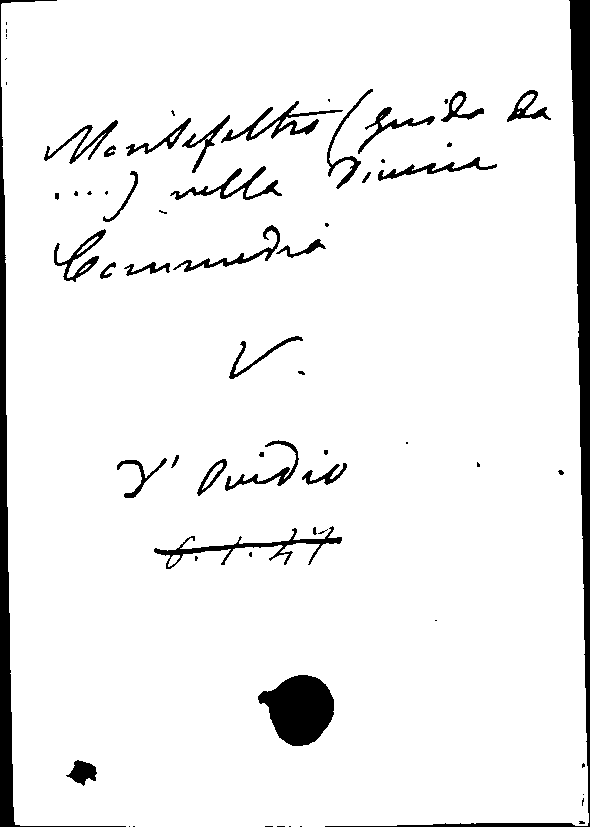 Montefeltro (guido da
....) nella Divina
Commedia
V.
D'Ovidio
6.1.47